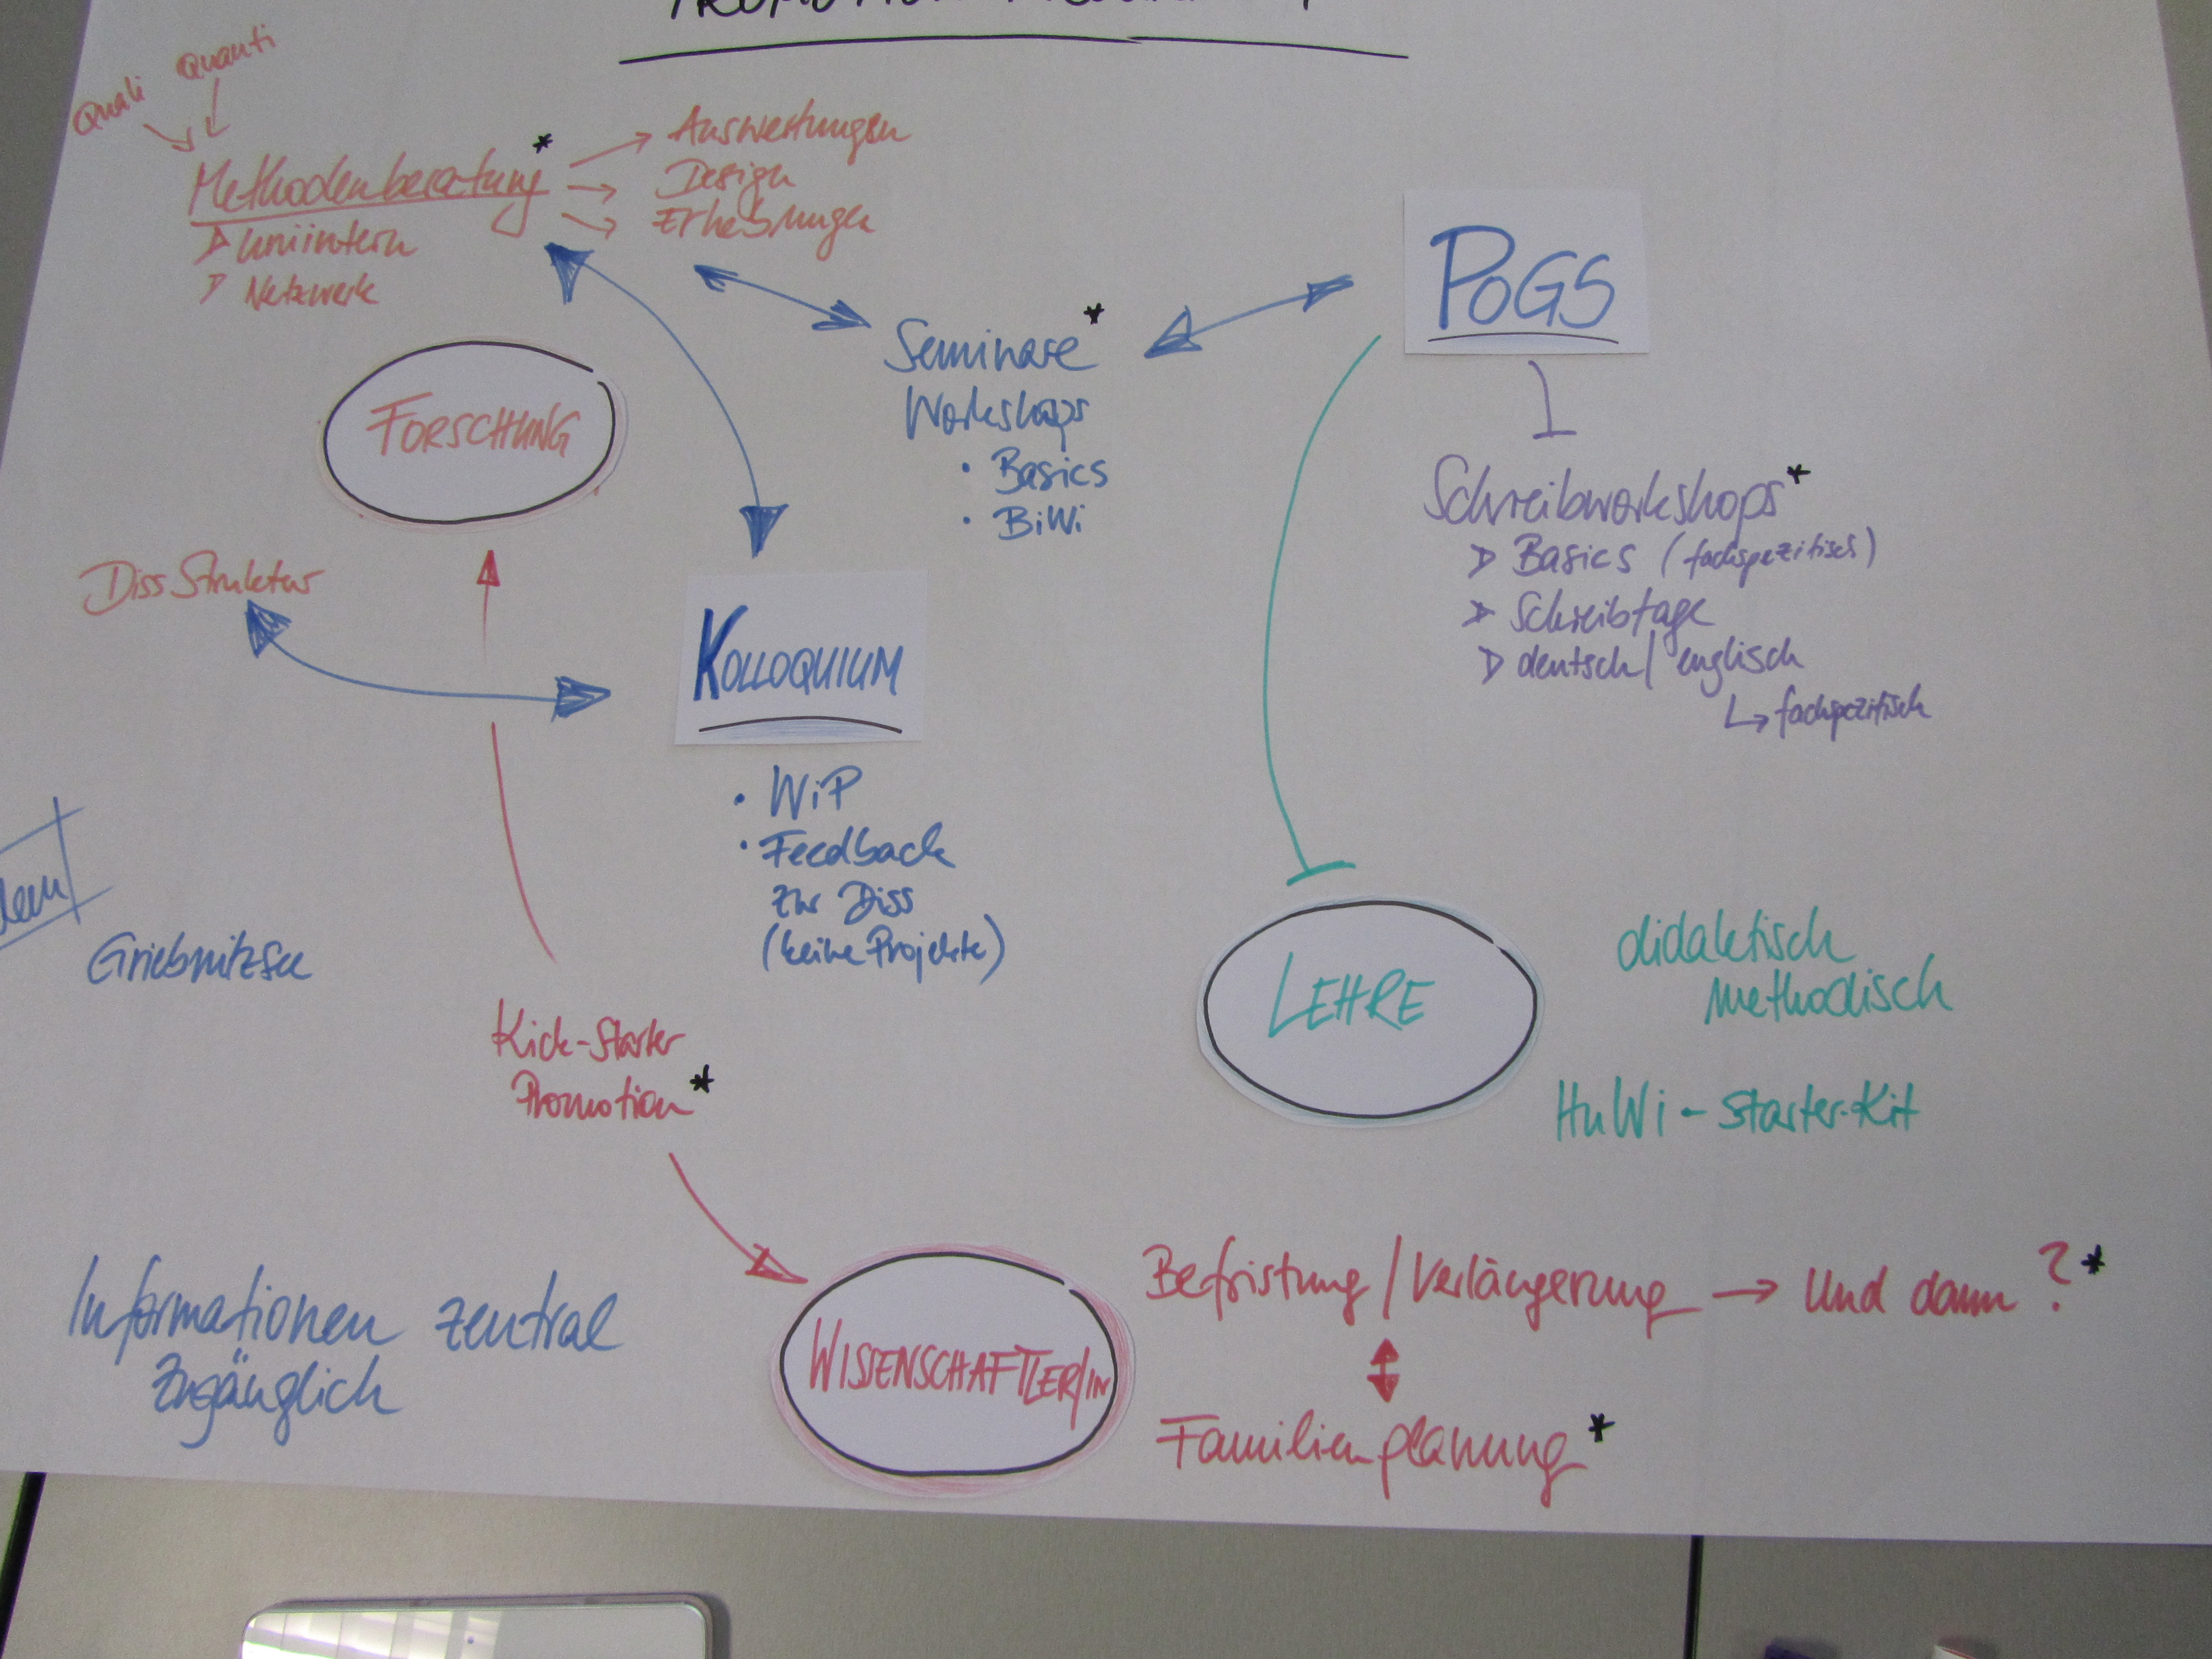 Quali
Quanti
Methodenberatung*
> uniintern
> Netzwerk
Auswertungen
Design
Erhebungen
Seminare*
Workshops
• Basics
• BiWi
POGS
FORSCHUNG
Schreibworkshops*
> Basics (fachspezifisch)
> Schreibtage
> deutsch / englisch
↳ fachpezifisch
Diss Struktur
KOLLOQUIUM
• WiP
• Feedback
zur Diss
(keine Projekte)
Griebnitzsee
Kick-Starter
Promotion*
LEHRE
didaktisch
methodisch
HuWi - Starter-Kit
Informationen zentral
zugänglich
WISSENSCHAFTLER/IN
Befristung / Verlängerung → Und dann?*
Familienplanung*